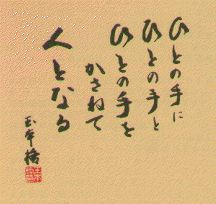 ひとの手に
ひとの手と
ひとの手を
かさねて
人となる